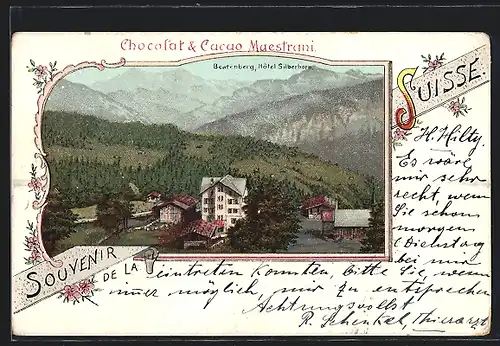 Chocolat & Cacao Maestrani.
Beatenberg, Hôtel Silberhorn.
SOUVENIR
DE LA
SUISSE.
H. Hilty.
Es wäre
mir sehr
recht, wenn
Sie schon
morgen
(Dienstag
bei mir
eintreten könnten, bitte Sie, wenn
immer möglich, mir zu entsprechen
Achtungsvollst
R. Schenkel, Thierarzt